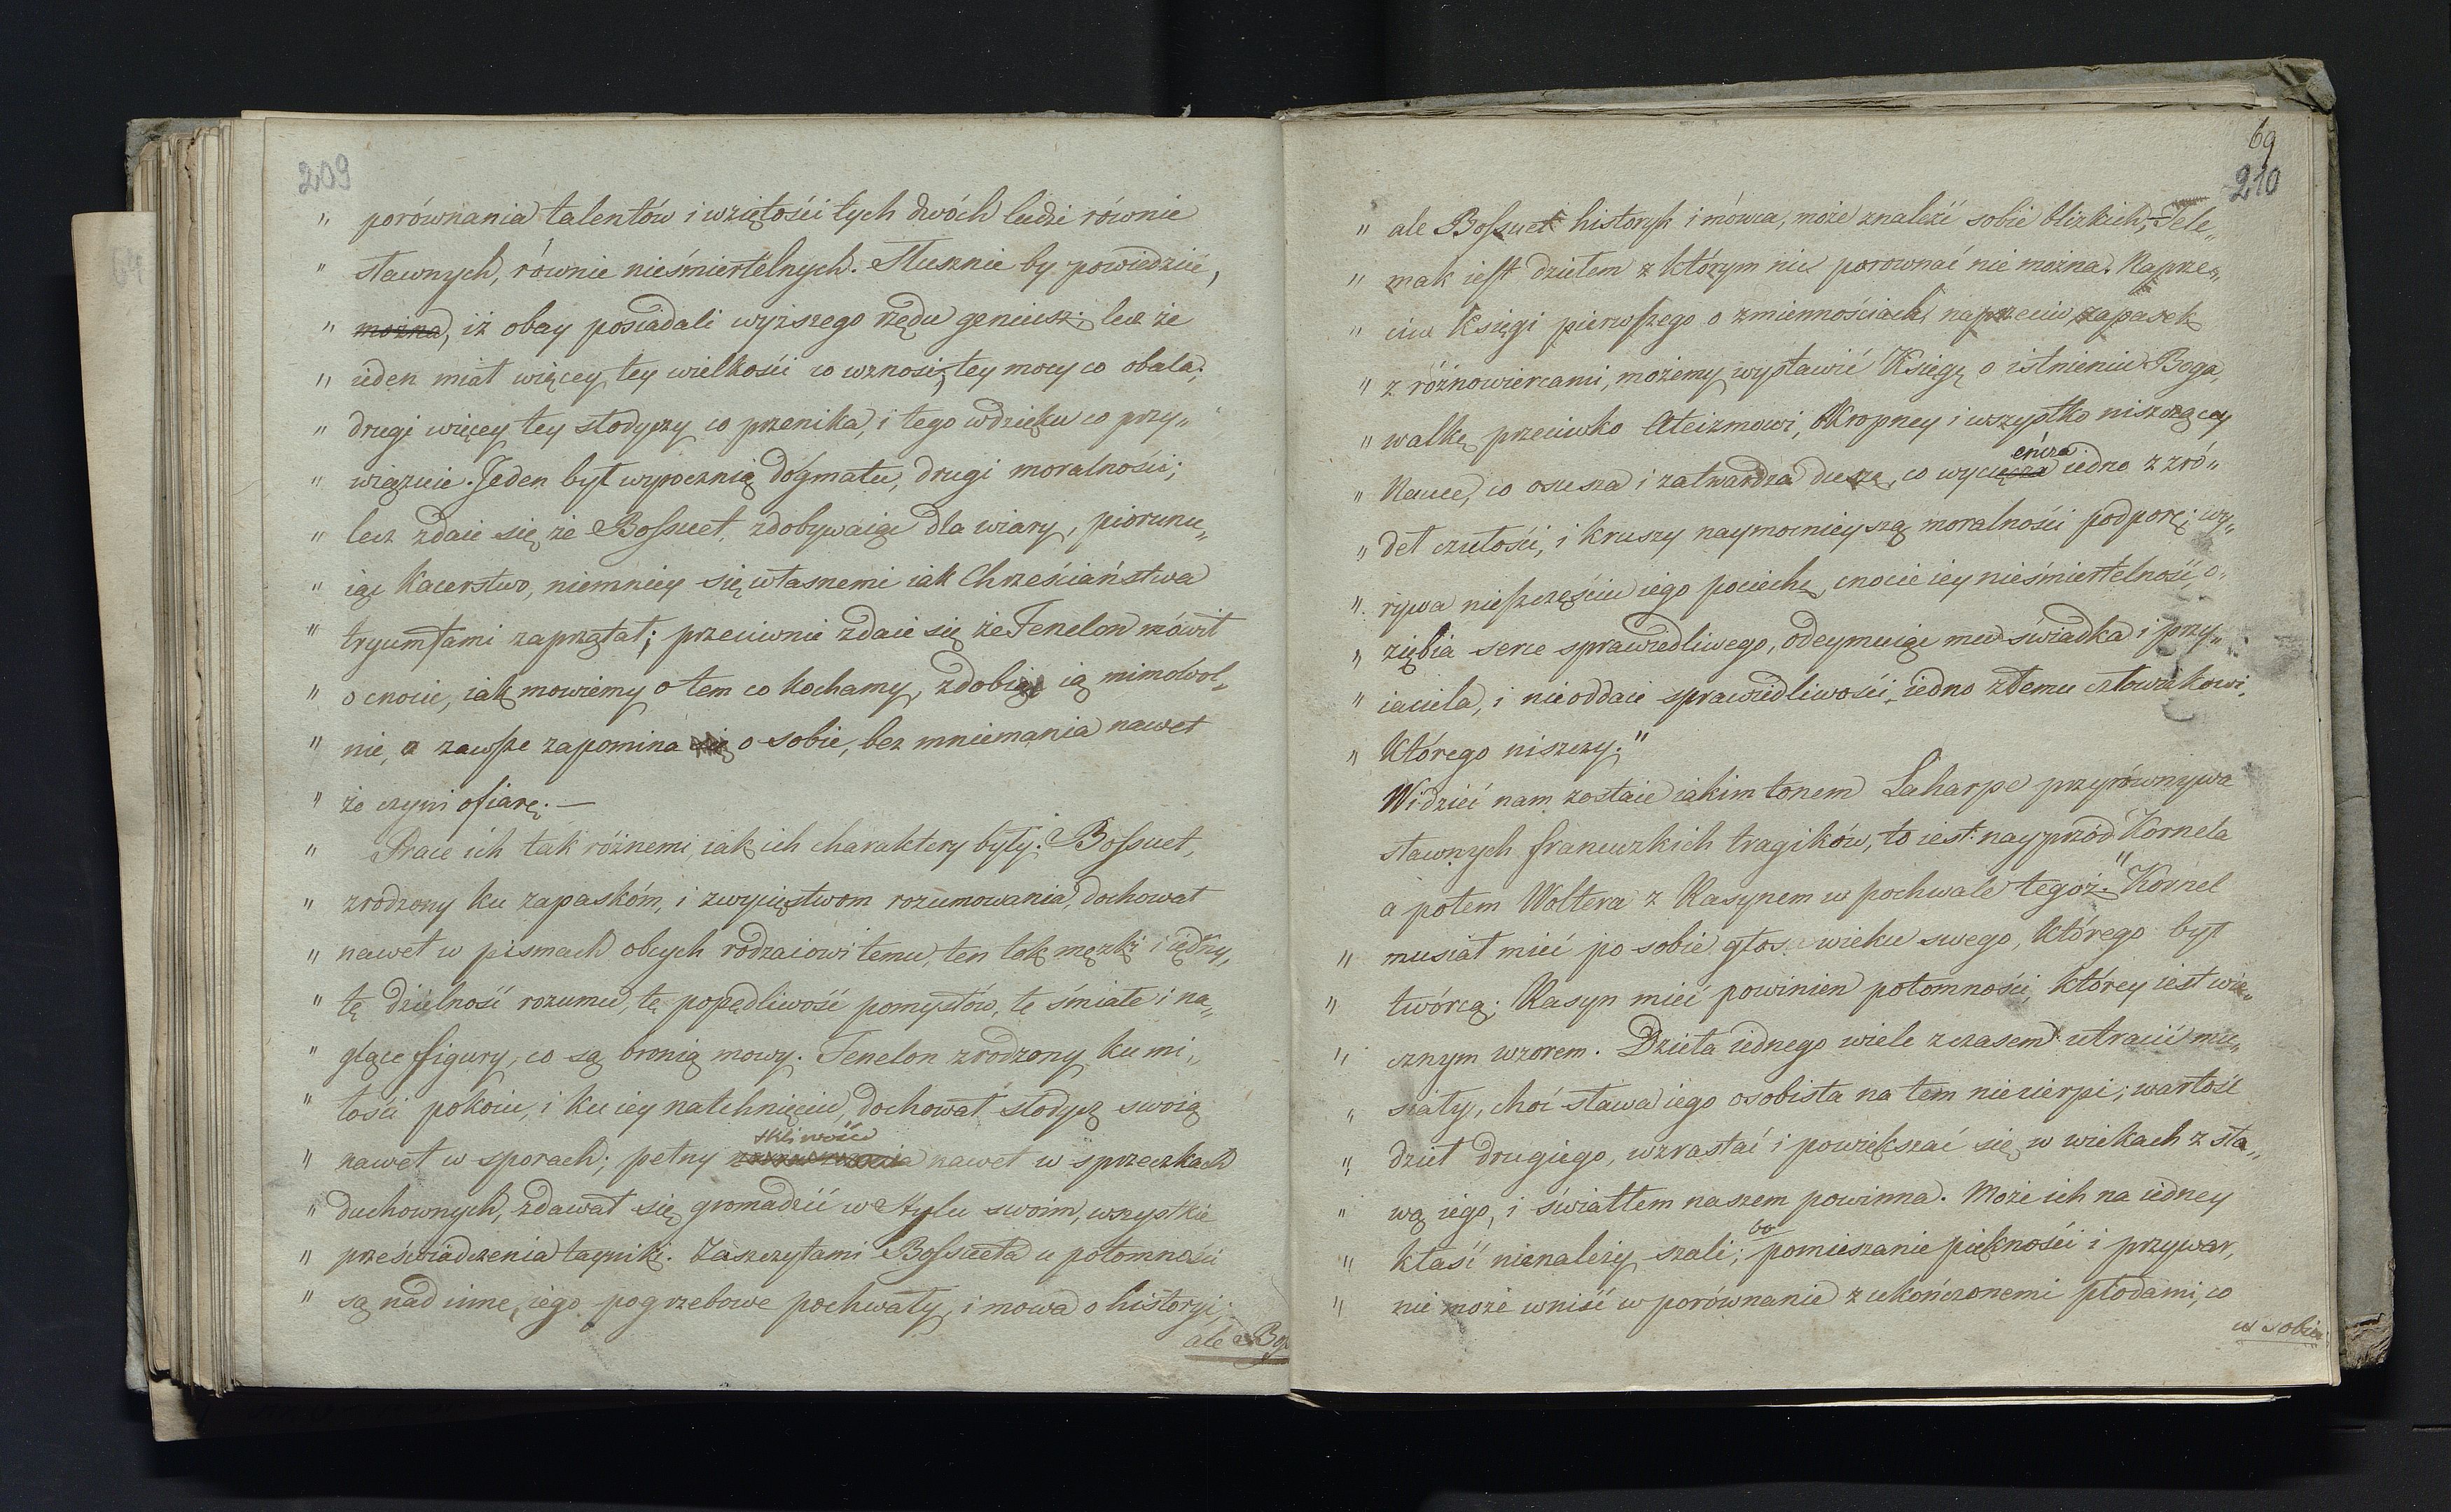 209
„ porównania talentów i wziętości tych dwóch ludzi równie
„ sławnych, równie nieśmiertelnych. Słusznie by powiedzieć,
„ można, iż obay posiadali wyższego rzędu geniusz: lecz że
„ ieden miał więcey tey wielkości co wznosi, tey mocy co obala;
„ drugi więcey tey słodyczy co przenika, i tego wdzięku co przy„
„ więzuie. Jeden był wyrocznią dogmatu, drugi moralności;
„ lecz zdaie się że Bossuet, zdobywaiąc dla wiary, piorunu„
„ iąc kacerstwo, niemniey się własnemi iak Chrześciaństwa
„ tryumfami zaprzątał; przeciwnie zdaie się że Fenelon mówił
„ o cnocie, iak mowiemy o tem co kochamy, zdobiąc ią mimowol„
„ nie, a zawsze zapomina się o sobie, bez mniemania nawet
„ że czyni ofiarę. —
„ Prace ich tak różnemi, iak ich charaktery były. Bossuet,
„ zrodzony ku zapaskóm, i zwycięstwom rozumowania, dochował
„ nawet w pismach obcych rodzaiowi temu, ten tok męzki i iędrny,
„ tę dzielność rozumu, tę popędliwość pomysłów, te śmiałe i na„
„ głące figury, co są bronią mowy. Fenelon zrodzony ku mi„
„ łości pokoiu, i ku iey natchnięciu, dochował słodycz swoią
tkliwości
„ nawet w sporach; pełny nawet w sprzeczkach
„ duchownych, zdawał się gromadzić w stylu swoim, wszystkie
„ przeświadczenia tayniki. Zaszczytami Bossueta u potomności
„ są nad inne, iego pogrzebowe pochwały, i mowa o historyi;
ale Bos
69
210
„ ale Bossuet historyk i mówca, może znaleźć sobie blizkich, — Tele„
„ mak iest dziełem z którym nic porownać nie można. Naprze„
„ ciw Księgi pierwszego o zmiennościach naprzeciw zapasek
„ z różnowiercami, możemy wystawić Księgę o istnieniu Boga,
„ walkę przeciwko Ateizmowi, Okropney i wszystko niszczącey
eńcza
„ Nauce, co osusza i zatwardza duszę, co wycięcza iedno z źró„
„ deł czułości, i kruszy naymocnieyszą moralności podporę; wy„
„ rywa nieszczęściu iego pociechę, cnocie iey nieśmiertelność, o„
„ ziębia serce sprawiedliwego, odeymuiąc mu świadka i przy„
„ iaciela, i nieoddaie sprawiedliwości, iedno złemu człowiekowi,
„ Którego niszczy."
Widzieć nam zostaie iakim tonem Laharpe przyrównywa
sławnych francuzkich tragików, to iest: nayprzód Kornela
a potem Woltera z Rasynem w pochwale tegoż. "Kornel
„ musiał mieć po sobie głos wieku swego, którego był
„ twórcą; Rasyn mieć powinien potomności, którey iest wie„
„ cznym wzorem. Dzieła iednego wiele z czasem utracić mu„
„ siały, choć sława iego osobista na tem niecierpi; wartość
„ dzieł drugiego, wzrastać i powiększać się w wiekach z sła„
„ wą iego, i światłem naszem powinna. Może ich na iedney
bo
„ kłaść nienależy szali; pomieszanie piękności i przywar,
„ nie może wniść w porównanie z ukończonemi płodami, co
w sobie